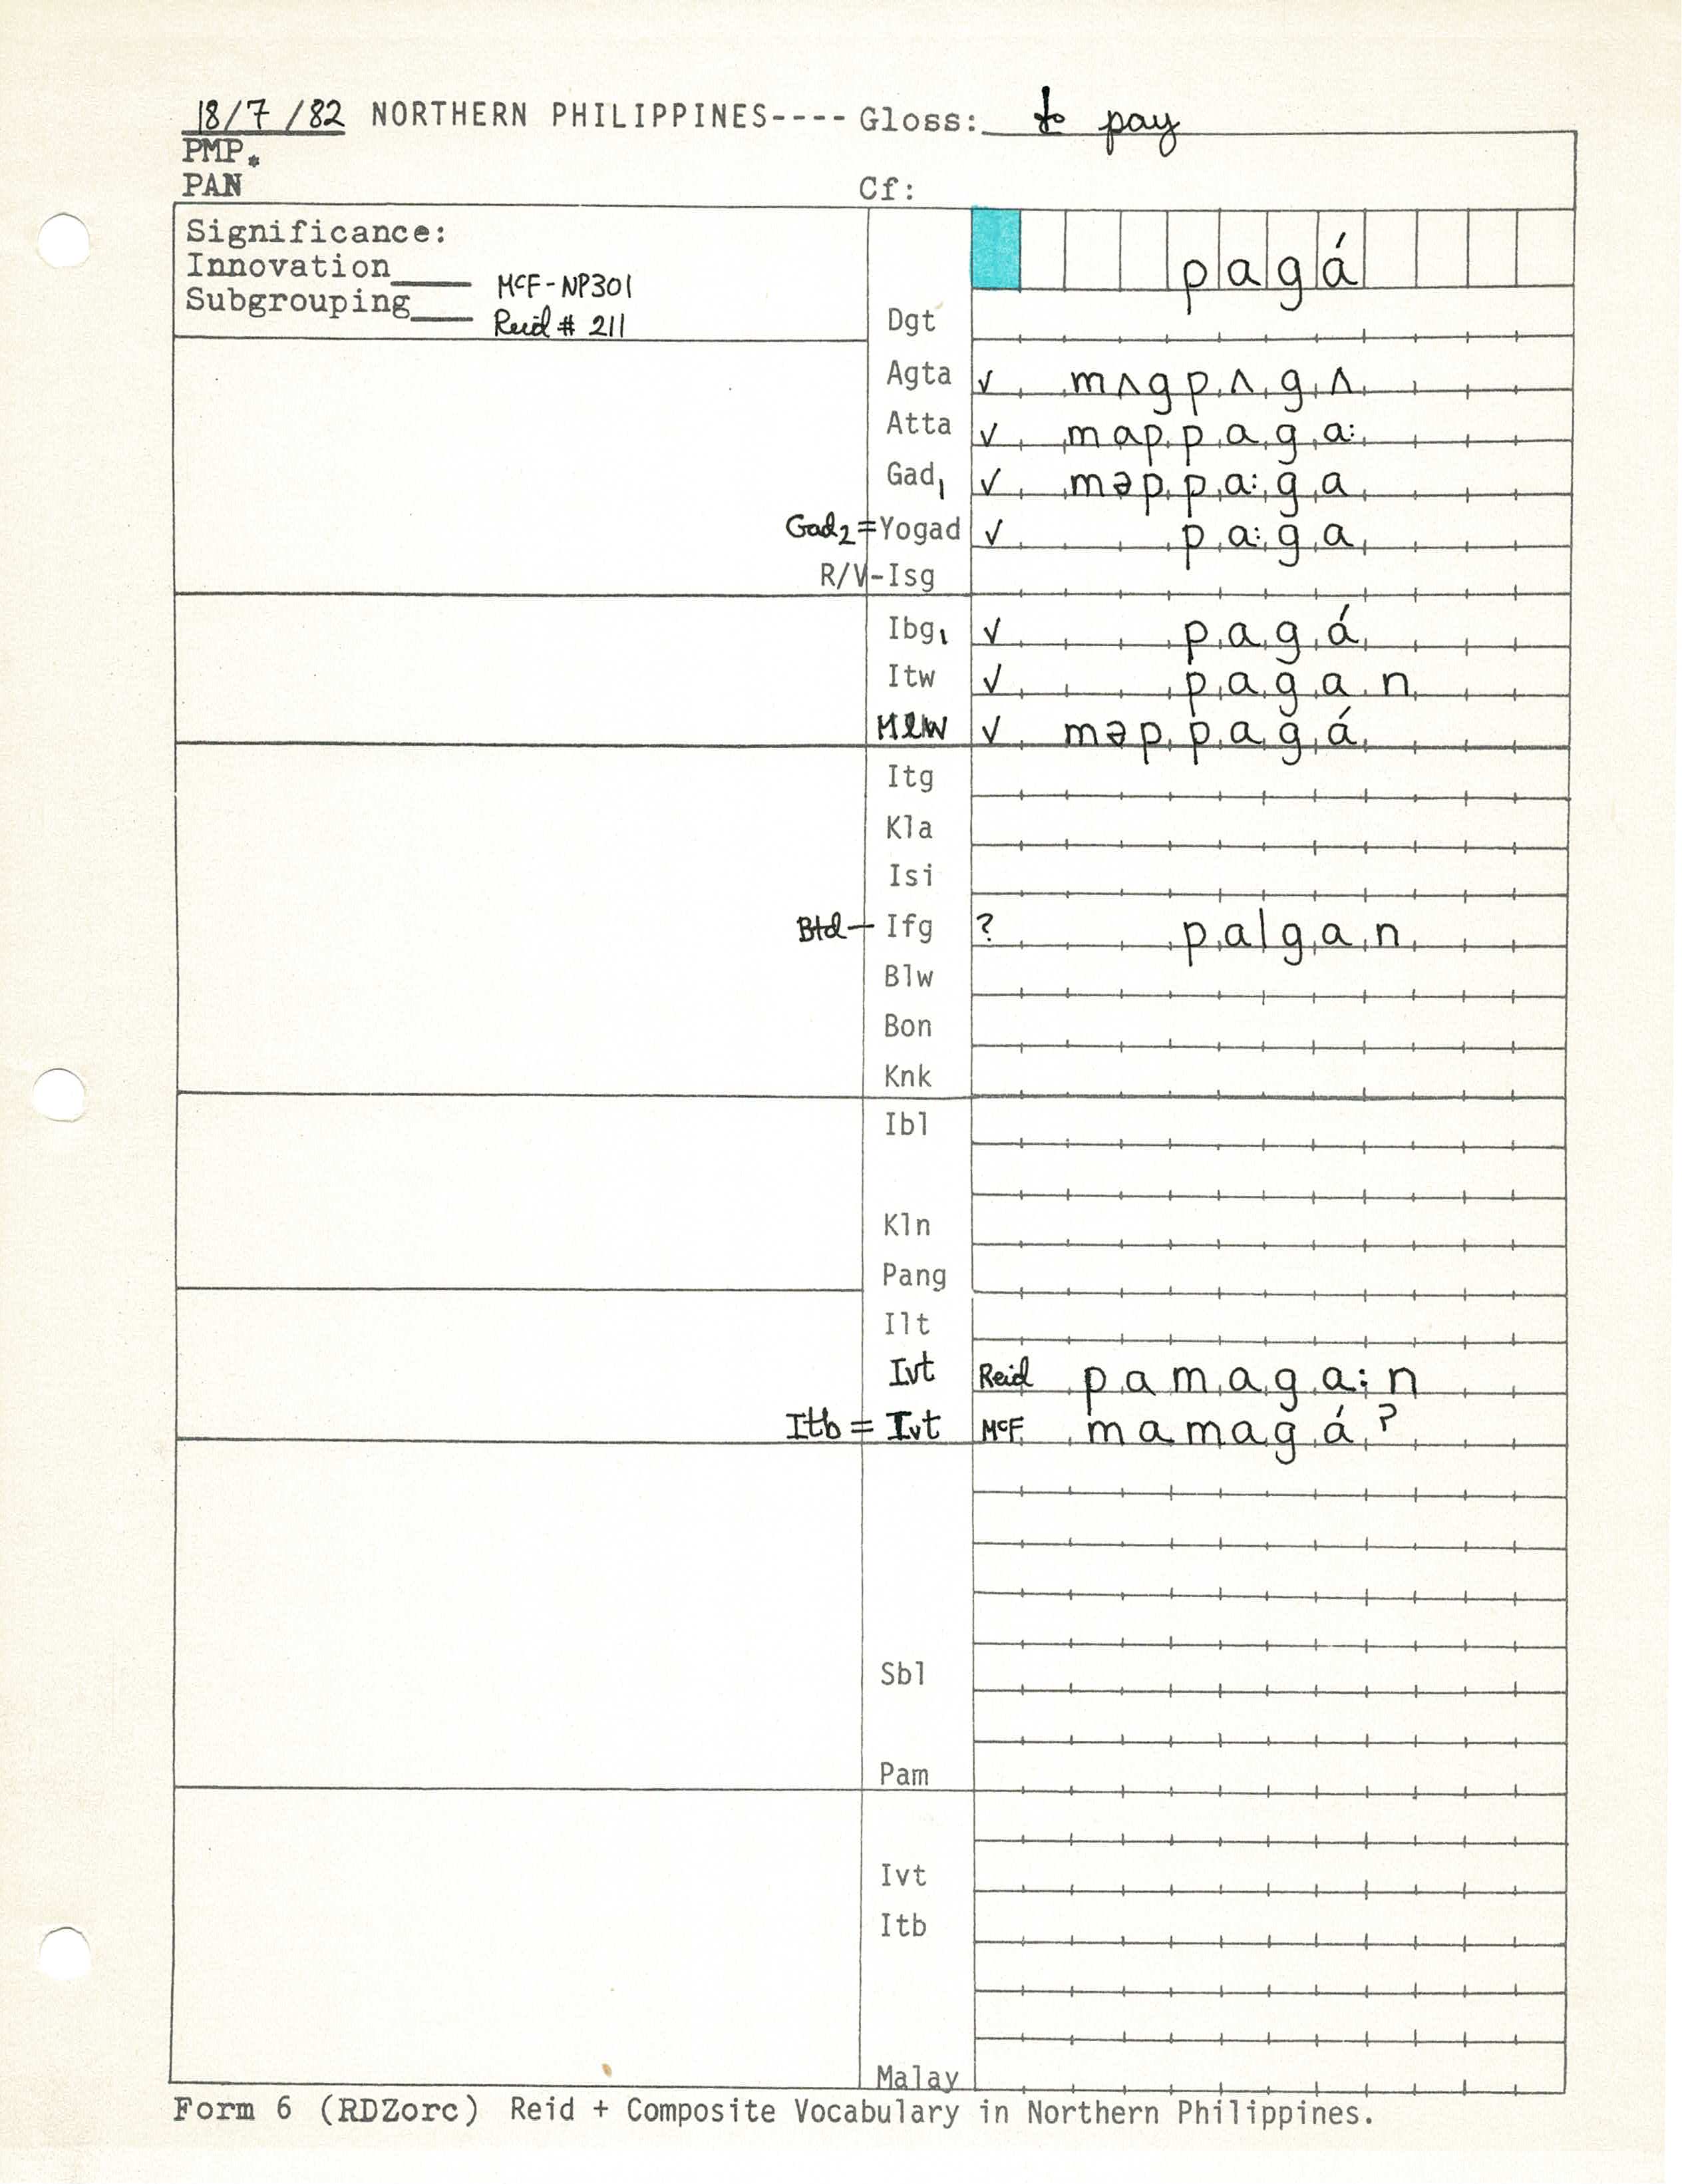 18/7/82 NORTHERN PHILIPPINES---- Gloss: to pay
PMP.
PAN Cf:
Significance:
Innovation____ McF-NP301
Subgrouping___ Reid # 211
pagá
Dgt
Agta ✓ mʌgpʌgʌ
Atta ✓ mappaga:
Gad₁ ✓ məppa:ga
Gad₂ = Yogad ✓ pa:ga
R/V-Isg
Ibg₁ ✓ pagá
Itw ✓ pagan
Mlw ✓ məppagá
Itg
Kla
Isi
Btd — Ifg ? palgan
Blw
Bon
Knk
Ibl
Kln
Pang
Ilt
Ivt Reid pamaga:n
Itb = Ivt McF mamagá?
Sbl
Pam
Ivt
Itb
Malay
Form 6 (RDZorc) Reid + Composite Vocabulary in Northern Philippines.